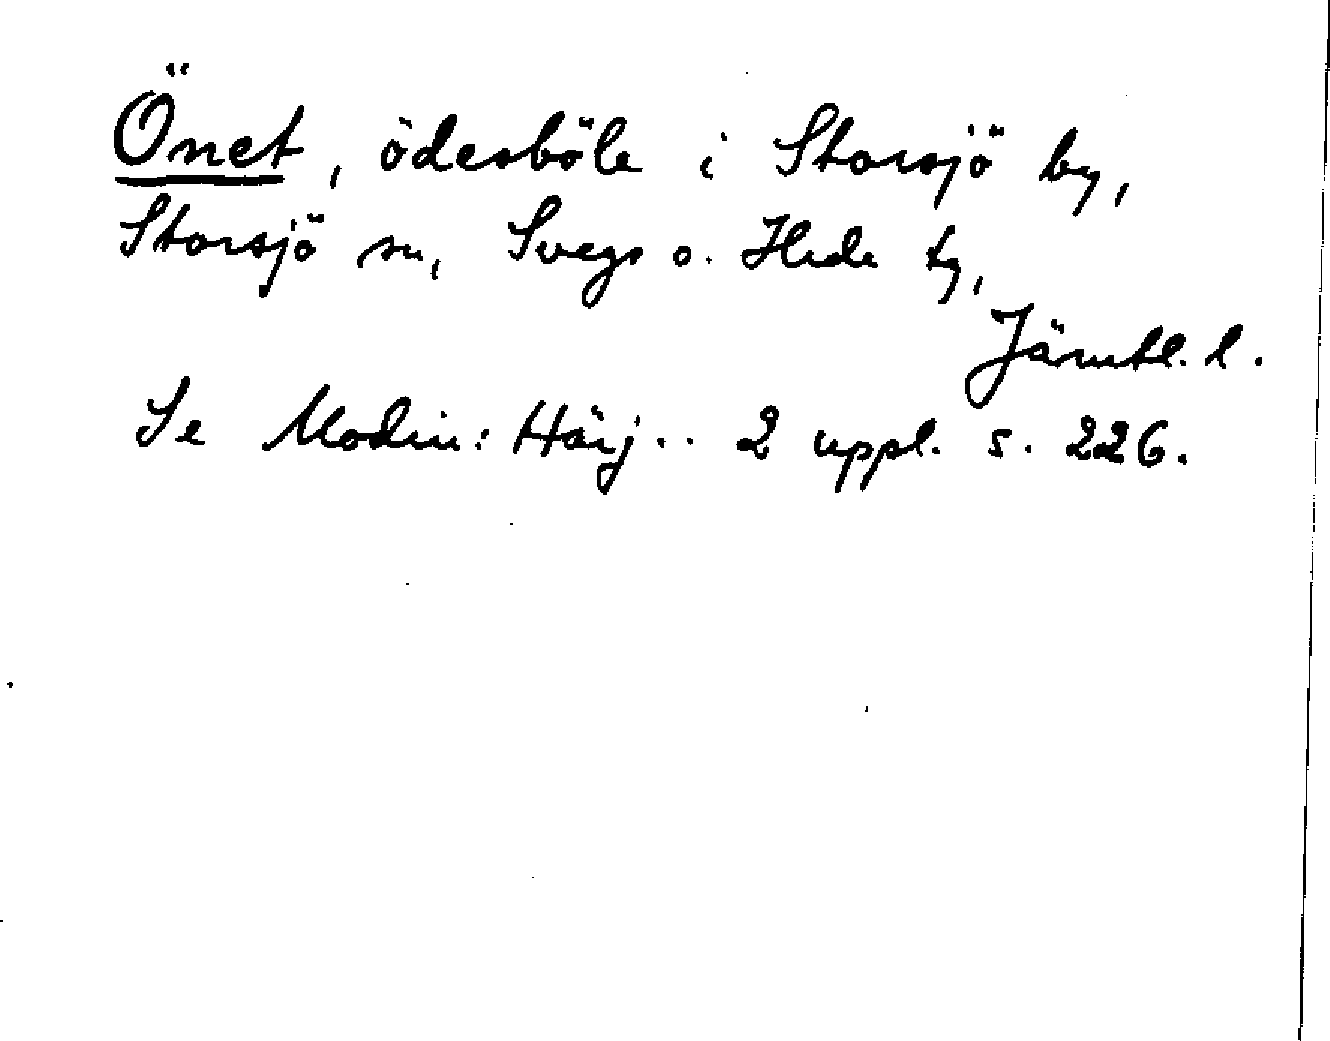 Önet, ödesböle i Storsjö by,
Storsjö sn, Svegs o. Hede tg,
Jämtl. l.
Se Modin: Härj.. 2 uppl. s. 226.